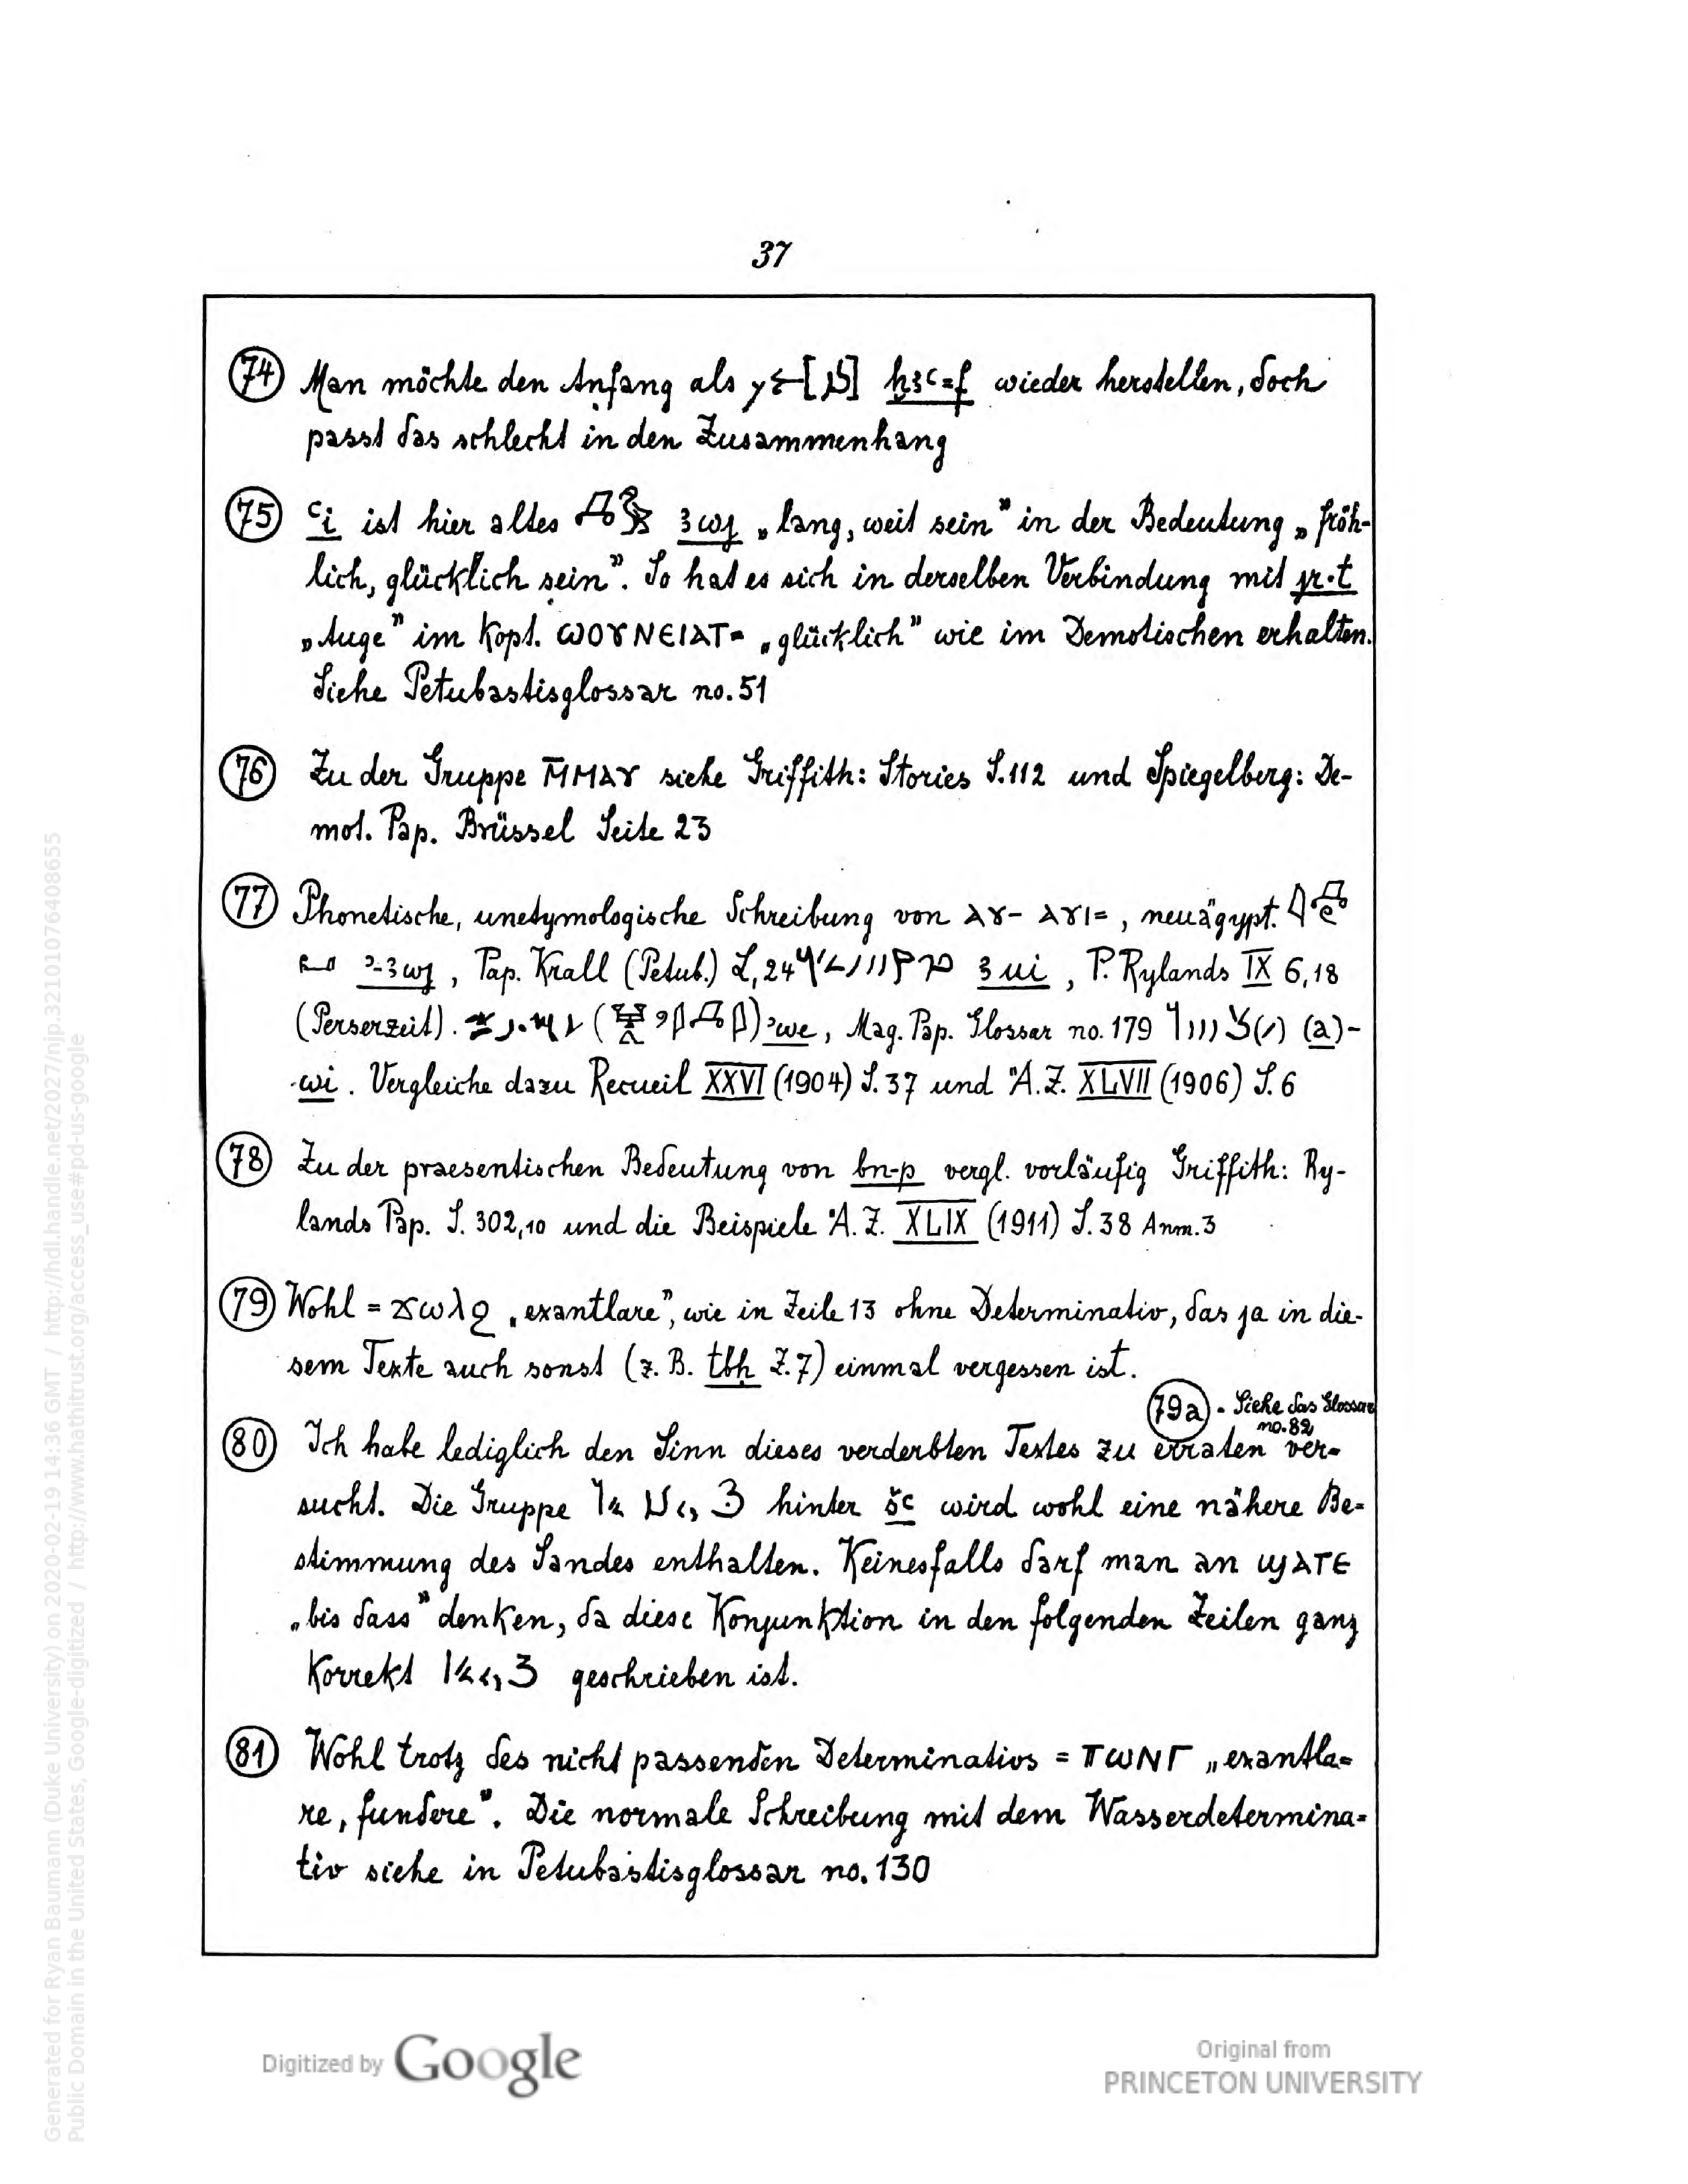 37
74 Man möchte den Anfang als [ ] ḫꜣꜥ=f wieder herstellen, doch
passt das schlecht in den Zusammenhang
75 ꜥi ist hier altes ꜣwj „lang, weit sein" in der Bedeutung „fröh-
lich, glücklich sein". So hat es sich in derselben Verbindung mit jr·t
„Auge" im Kopt. ⲰⲞⲨⲚⲈⲒⲀⲦ= „glücklich" wie im Demotischen erhalten.
Siehe Petubastisglossar no. 51
76 Zu der Gruppe ⲘⲘⲀⲨ siehe Griffith: Stories S. 112 und Spiegelberg: De-
mot. Pap. Brüssel Seite 23
77 Phonetische, unetymologische Schreibung von ⲀⲨ- ⲀⲨⲒ=, neuägypt.
ꜣwj, Pap. Krall (Petub.) L, 24 ꜣui, P. Rylands IX 6,18
(Perserzeit). ( ) ꜣwe, Mag. Pap. Glossar no. 179 (a)-
wi. Vergleiche dazu Recueil XXVI (1904) S. 37 und Ä.Z. XLVII (1906) S. 6
78 Zu der praesentischen Bedeutung von bn-p vergl. vorläufig Griffith: Ry-
lands Pap. S. 302,10 und die Beispiele Ä.Z. XLIX (1911) S. 38 Anm. 3
79 Wohl = ϫⲱⲗϩ „exantlare", wie in Zeile 13 ohne Determinativ, das ja in die-
sem Texte auch sonst (z. B. tbḥ Z. 7) einmal vergessen ist.
79a - Siehe das Glossar
no. 82
80 Ich habe lediglich den Sinn dieses verderbten Textes zu erraten ver=
sucht. Die Gruppe hinter šꜥ wird wohl eine nähere Be=
stimmung des Sandes enthalten. Keinesfalls darf man an ϢⲀⲦⲈ
„bis dass" denken, da diese Konjunktion in den folgenden Zeilen ganz
korrekt geschrieben ist.
81 Wohl trotz des nicht passenden Determinativs = ⲠⲰⲚⲄ „exantla=
re, fundere". Die normale Schreibung mit dem Wasserdetermina=
tiv siehe in Petubastisglossar no. 130
Digitized by Google
Original from
PRINCETON UNIVERSITY
Generated for Ryan Baumann (Duke University) on 2020-02-19 14:36 GMT / http://hdl.handle.net/2027/njp.32101076408655
Public Domain in the United States, Google-digitized / http://www.hathitrust.org/access_use#pd-us-google